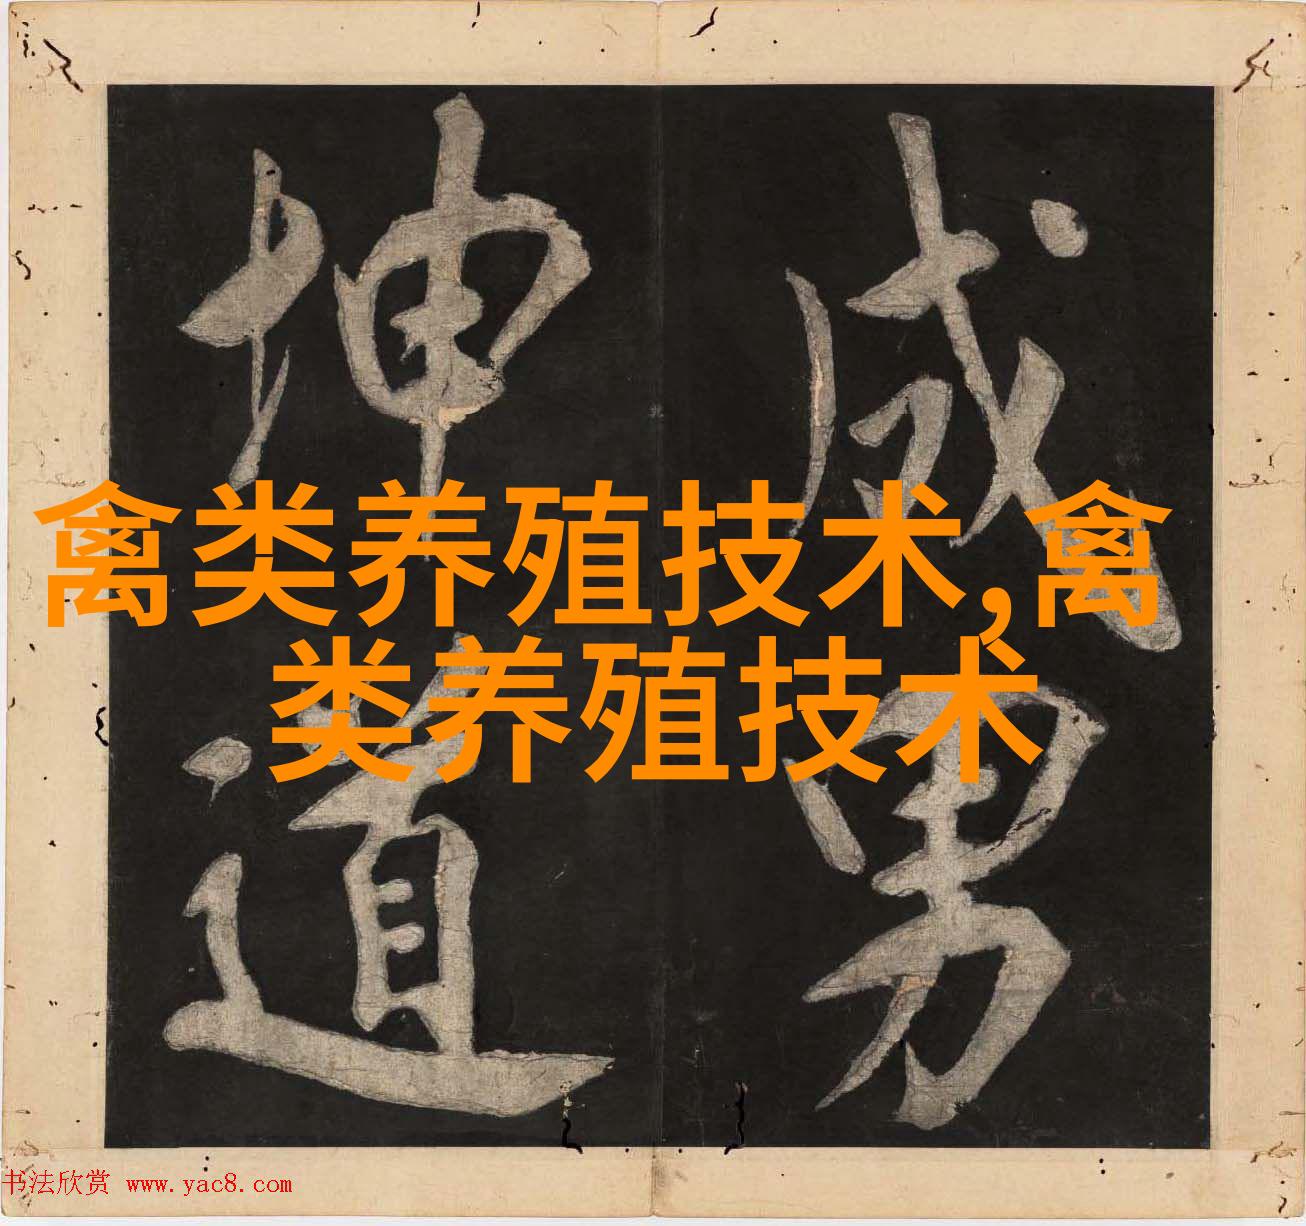 成男
坤道
禽类养殖技术,禽
类养殖技术
书法欣赏 www.yac8.com